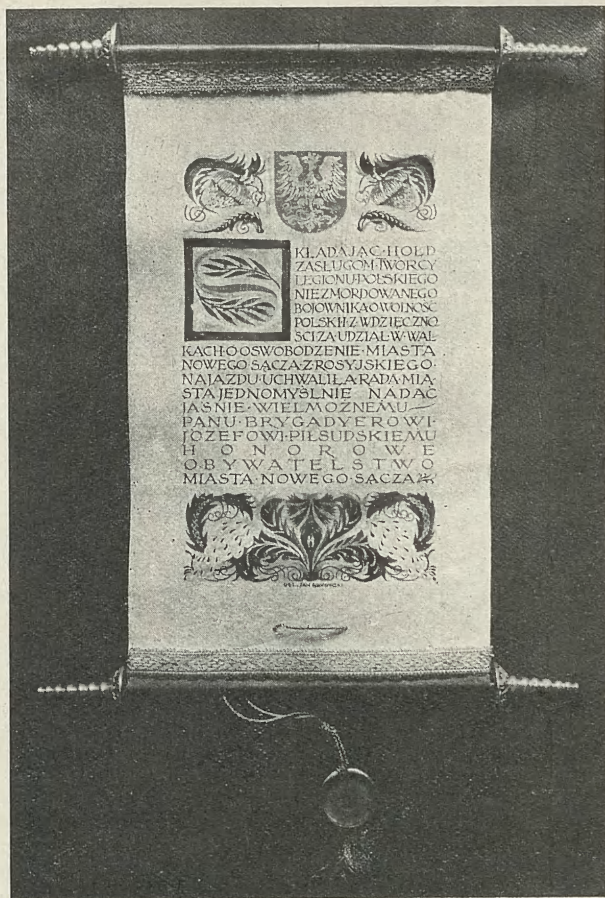 SKŁADAJĄC·HOŁD
ZASŁUGOM·TWÓRCY
LEGIONU·POLSKIEGO
NIEZMORDOWANEGO
BOJOWNIKA·O·WOLNOŚĆ
POLSKI·I·Z·WDZIĘCZNO
ŚCI·ZA·UDZIAŁ·W·WAL-
KACH·O·OSWOBODZENIE·MIASTA
NOWEGO·SĄCZA·Z·ROSYJSKIEGO·
NAJAZDU·UCHWALIŁA·RADA·MIA-
STA·JEDNOMYŚLNIE NADAĆ
JAŚNIE·WIELMOŻNEMU
PANU·BRYGADYEROWI·
JÓZEFOWI·PIŁSUDSKIEMU
HONOROWE
OBYWATELSTWO
MIASTA·NOWEGO·SĄCZA